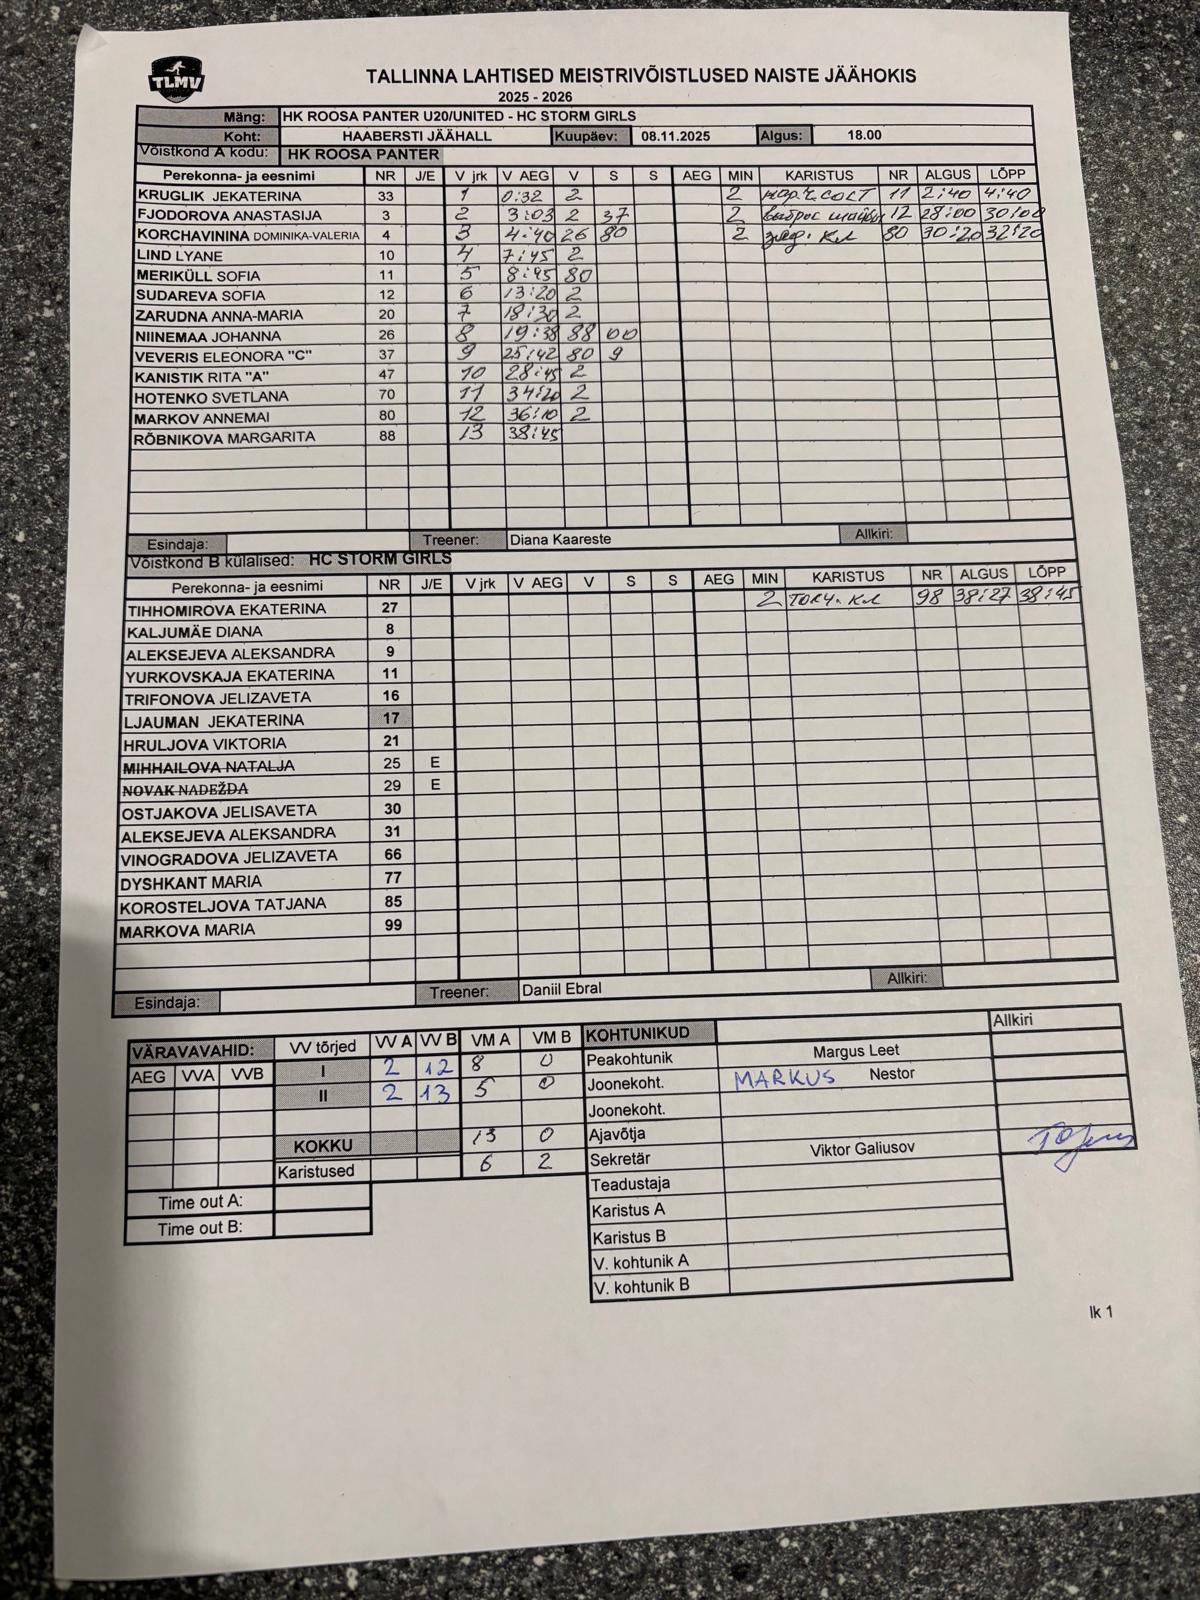 TLMV
TALLINNA LAHTISED MEISTRIVÕISTLUSED NAISTE JÄÄHOKIS
2025 - 2026
Mäng: HK ROOSA PANTER U20/UNITED - HC STORM GIRLS
Koht: HAABERSTI JÄÄHALL Kuupäev: 08.11.2025 Algus: 18.00
Võistkond A kodu: HK ROOSA PANTER
Perekonna- ja eesnimi NR J/E V jrk V AEG V S S AEG MIN KARISTUS NR ALGUS LÕPP
KRUGLIK JEKATERINA 33 1 0:32 2 2 11 2:40 4:40
FJODOROVA ANASTASIJA 3 2 3:03 2 37 2 выброс шайбы 12 28:00 30:00
KORCHAVININA DOMINIKA-VALERIA 4 3 4:40 26 80 2 80 30:20 32:20
LIND LYANE 10 4 7:45 2
MERIKÜLL SOFIA 11 5 8:45 80
SUDAREVA SOFIA 12 6 13:20 2
ZARUDNA ANNA-MARIA 20 7 18:30 2
NIINEMAA JOHANNA 26 8 19:38 88 00
VEVERIS ELEONORA "C" 37 9 25:42 80 9
KANISTIK RITA "A" 47 10 28:45 2
HOTENKO SVETLANA 70 11 34:20 2
MARKOV ANNEMAI 80 12 36:10 2
RÕBNIKOVA MARGARITA 88 13 38:45
Esindaja: Treener: Diana Kaareste Allkiri:
Võistkond B külalised: HC STORM GIRLS
Perekonna- ja eesnimi NR J/E V jrk V AEG V S S AEG MIN KARISTUS NR ALGUS LÕPP
TIHHOMIROVA EKATERINA 27 2 толч. кл 98 38:27 38:45
KALJUMÄE DIANA 8
ALEKSEJEVA ALEKSANDRA 9
YURKOVSKAJA EKATERINA 11
TRIFONOVA JELIZAVETA 16
LJAUMAN JEKATERINA 17
HRULJOVA VIKTORIA 21
MIHHAILOVA NATALJA 25 E
NOVAK NADEŽDA 29 E
OSTJAKOVA JELISAVETA 30
ALEKSEJEVA ALEKSANDRA 31
VINOGRADOVA JELIZAVETA 66
DYSHKANT MARIA 77
KOROSTELJOVA TATJANA 85
MARKOVA MARIA 99
Esindaja: Treener: Daniil Ebral Allkiri:
VÄRAVAVAHID: VV tõrjed VV A VV B VM A VM B KOHTUNIKUD Allkiri
AEG VVA VVB I 2 12 8 0 Peakohtunik Margus Leet
II 2 13 5 0 Joonekoht. MARKUS Nestor
Joonekoht.
KOKKU 13 0 Ajavõtja
Karistused 6 2 Sekretär Viktor Galiusov
Time out A: Teadustaja
Time out B: Karistus A
Karistus B
V. kohtunik A
V. kohtunik B
lk 1